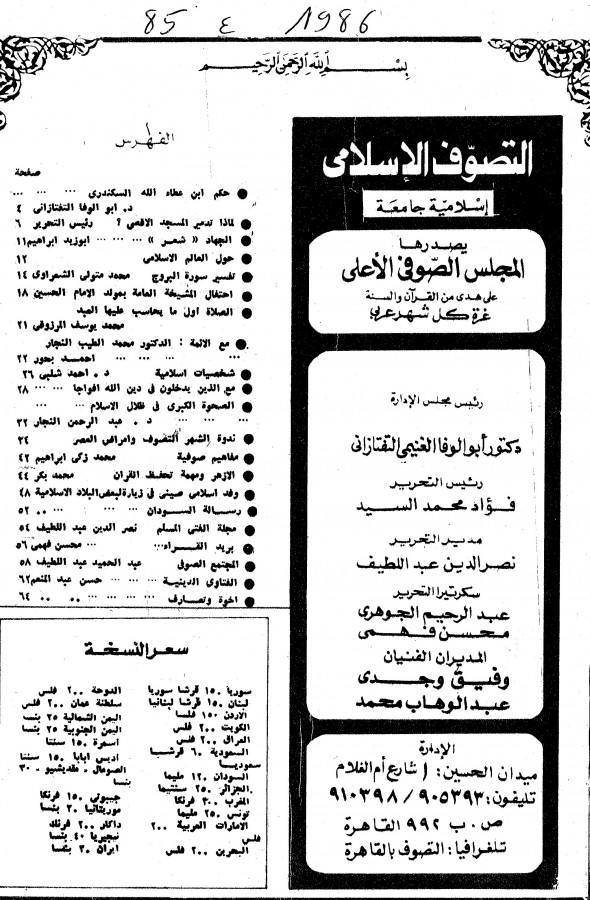 85 ٤ 1986
بِسْمِ اللهِ الرَّحْمٰنِ الرَّحِيمِ
التصوّف الإسلامى
إسلاميّة جامعَة
يصدرها
المجلس الصّوفى الأعلى
على هدى من القرآن والسنة
غرة كل شهر عربى
رئيس مجلس الإدارة
دكتور أبو الوفا الغنيمى التفتازانى
رئيس التحرير
فؤاد محمد السيد
مدير التحرير
نصر الدين عبد اللطيف
سكرتيرا التحرير
عبد الرحيم الجوهرى
محسن فهمى
المديران الفنيان
وفيق وجدى
عبد الوهاب محمد
الإدارة
ميدان الحسين: ١ شارع أم الغلام
تليفون: ٩٠٥٣٩٣ / ٩١٠٣٩٨
ص . ب ٩٩٢ القاهرة
تلغرافيا: التصوف بالقاهرة
الفهرس
صفحة
● حكم ابن عطاء الله السكندرى ... ... ...
د. ابو الوفا التفتازانى ٤
● لماذا تدمير المسجد الاقصى ؟ رئيس التحرير ٦
● الجهاد « شعر » ... ... ... ابوزيد ابراهيم ١١
● حول العالم الاسلامى ١٢
● تفسير سورة البروج محمد متولى الشعراوى ١٤
● احتفال المشيخة العامة بمولد الامام الحسين ١٨
● الصلاة اول ما يحاسب عليها العبد
محمد يوسف المرزوقى ٢١
● مع الائمة : الدكتور محمد الطيب النجار
... ... ... احمد بحور ٢٢
● شخصيات اسلامية د . احمد شلبى ٢٦
● مع الذين يدخلون فى دين الله افواجا ... ... ٢٨
● الصحوة الكبرى فى ظلال الاسلام ... ...
... ... ... د . عبد الرحمن النجار ٣٢
● ندوة الشهر التصوف وامراض العصر ٣٤
● مفاهيم صوفية محمد زكى ابراهيم ٤٢
● الازهر ومهمة تحفظ القران محمد بكر ٤٤
● وفد اسلامى صينى فى زيارة لبعض البلاد الاسلامية ٤٨
● رسالة السودان ... ... ... ٥٢
● مجلة الفتى المسلم نصر الدين عبد اللطيف ٥٤
● بريد القراء ... ... محسن فهمى ٥٦
● المجتمع الصوفى عبد الحميد عبد اللطيف ٥٨
● الفتاوى الدينية ... ... حسن عبد المنعم ٦٢
● اخوة وتصارف ... ... ... ... ٦٤
سعر النسخة
سوريا ١٥٠ قرشا سوريا
لبنان ١٥٠ قرشا لبنانيا
الأردن ١٥٠ فلسا
الكويت ٢٠٠ فلس
العراق ٢٠٠ فلس
السعودية ٦٠ قرشا
سعوديا
السودان ١٢٠ مليما
الجزائر ٢٥٠ سنتيما
المغرب ٣٠٠ فرنكا
تونس ٢٥٠ مليما
الامارات العربية ٢٠٠
فلس
البحرين ٢٠٠ فلس
الدوحة ٢٠٠ فلس
سلطنة عمان ٢٠٠ فلس
اليمن الشمالية ٢٥ بنسا
اليمن الجنوبية ٢٥ بنسا
اسمرة ١٥٠ سنتا
اديس ابابا ١٥٠ سنتا
الصومال ـ مقديشيو ـ ٣٠
بنسا
جيبوتى ١٥٠ فرنكا
موريتانيا ٣٠ بنسا
داكار ٢٠٠ فرنك
نيجيريا ٤٠ بنسا
ايران ٣٠ بنسا